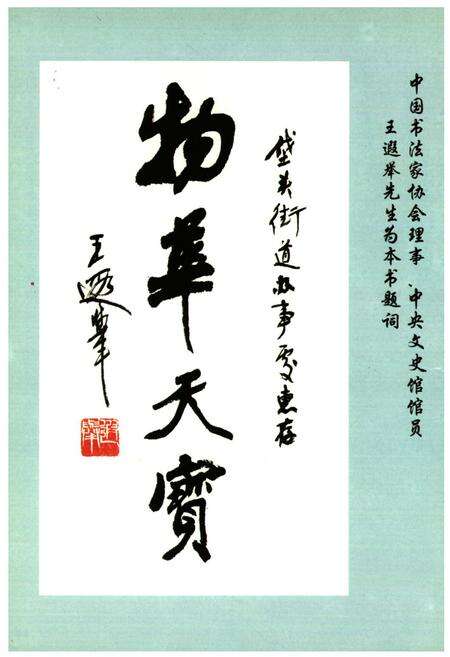 中国书法家协会理事、中央文史馆馆员
王遐举先生为本书题词
垡头街道办事处惠存
物華天寳
王遐举
遐舉